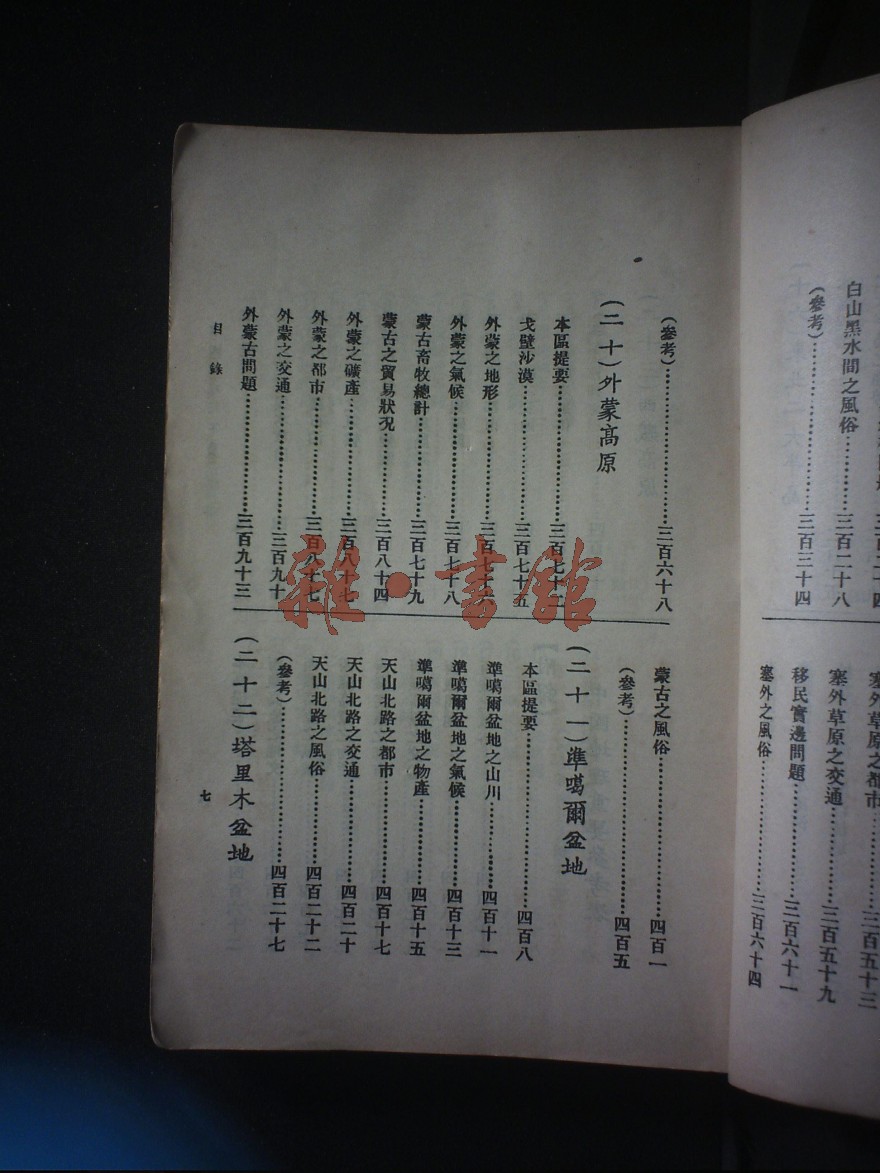 白山黑水間之風俗……三百二十八
(參考)……三百三十四
塞外草原之都市……三百五十三
塞外草原之交通……三百五十九
移民實邊問題……三百六十一
塞外之風俗……三百六十四
(參考)……三百六十八
(二十)外蒙高原
本區提要……三百七十二
戈壁沙漠……三百七十五
外蒙之地形……三百七十六
外蒙之氣候……三百七十八
蒙古畜牧總計……三百七十九
蒙古之貿易狀況……三百八十四
外蒙之礦產……三百八十七
外蒙之都市……三百八十七
外蒙之交通……三百九十
外蒙古問題……三百九十三
蒙古之風俗……四百一
(參考)……四百五
(二十一)準噶爾盆地
本區提要……四百八
準噶爾盆地之山川……四百十一
準噶爾盆地之氣候……四百十三
準噶爾盆地之物產……四百十五
天山北路之都市……四百十七
天山北路之交通……四百二十
天山北路之風俗……四百二十二
(參考)……四百二十七
(二十二)塔里木盆地
目錄
七
雜·書館